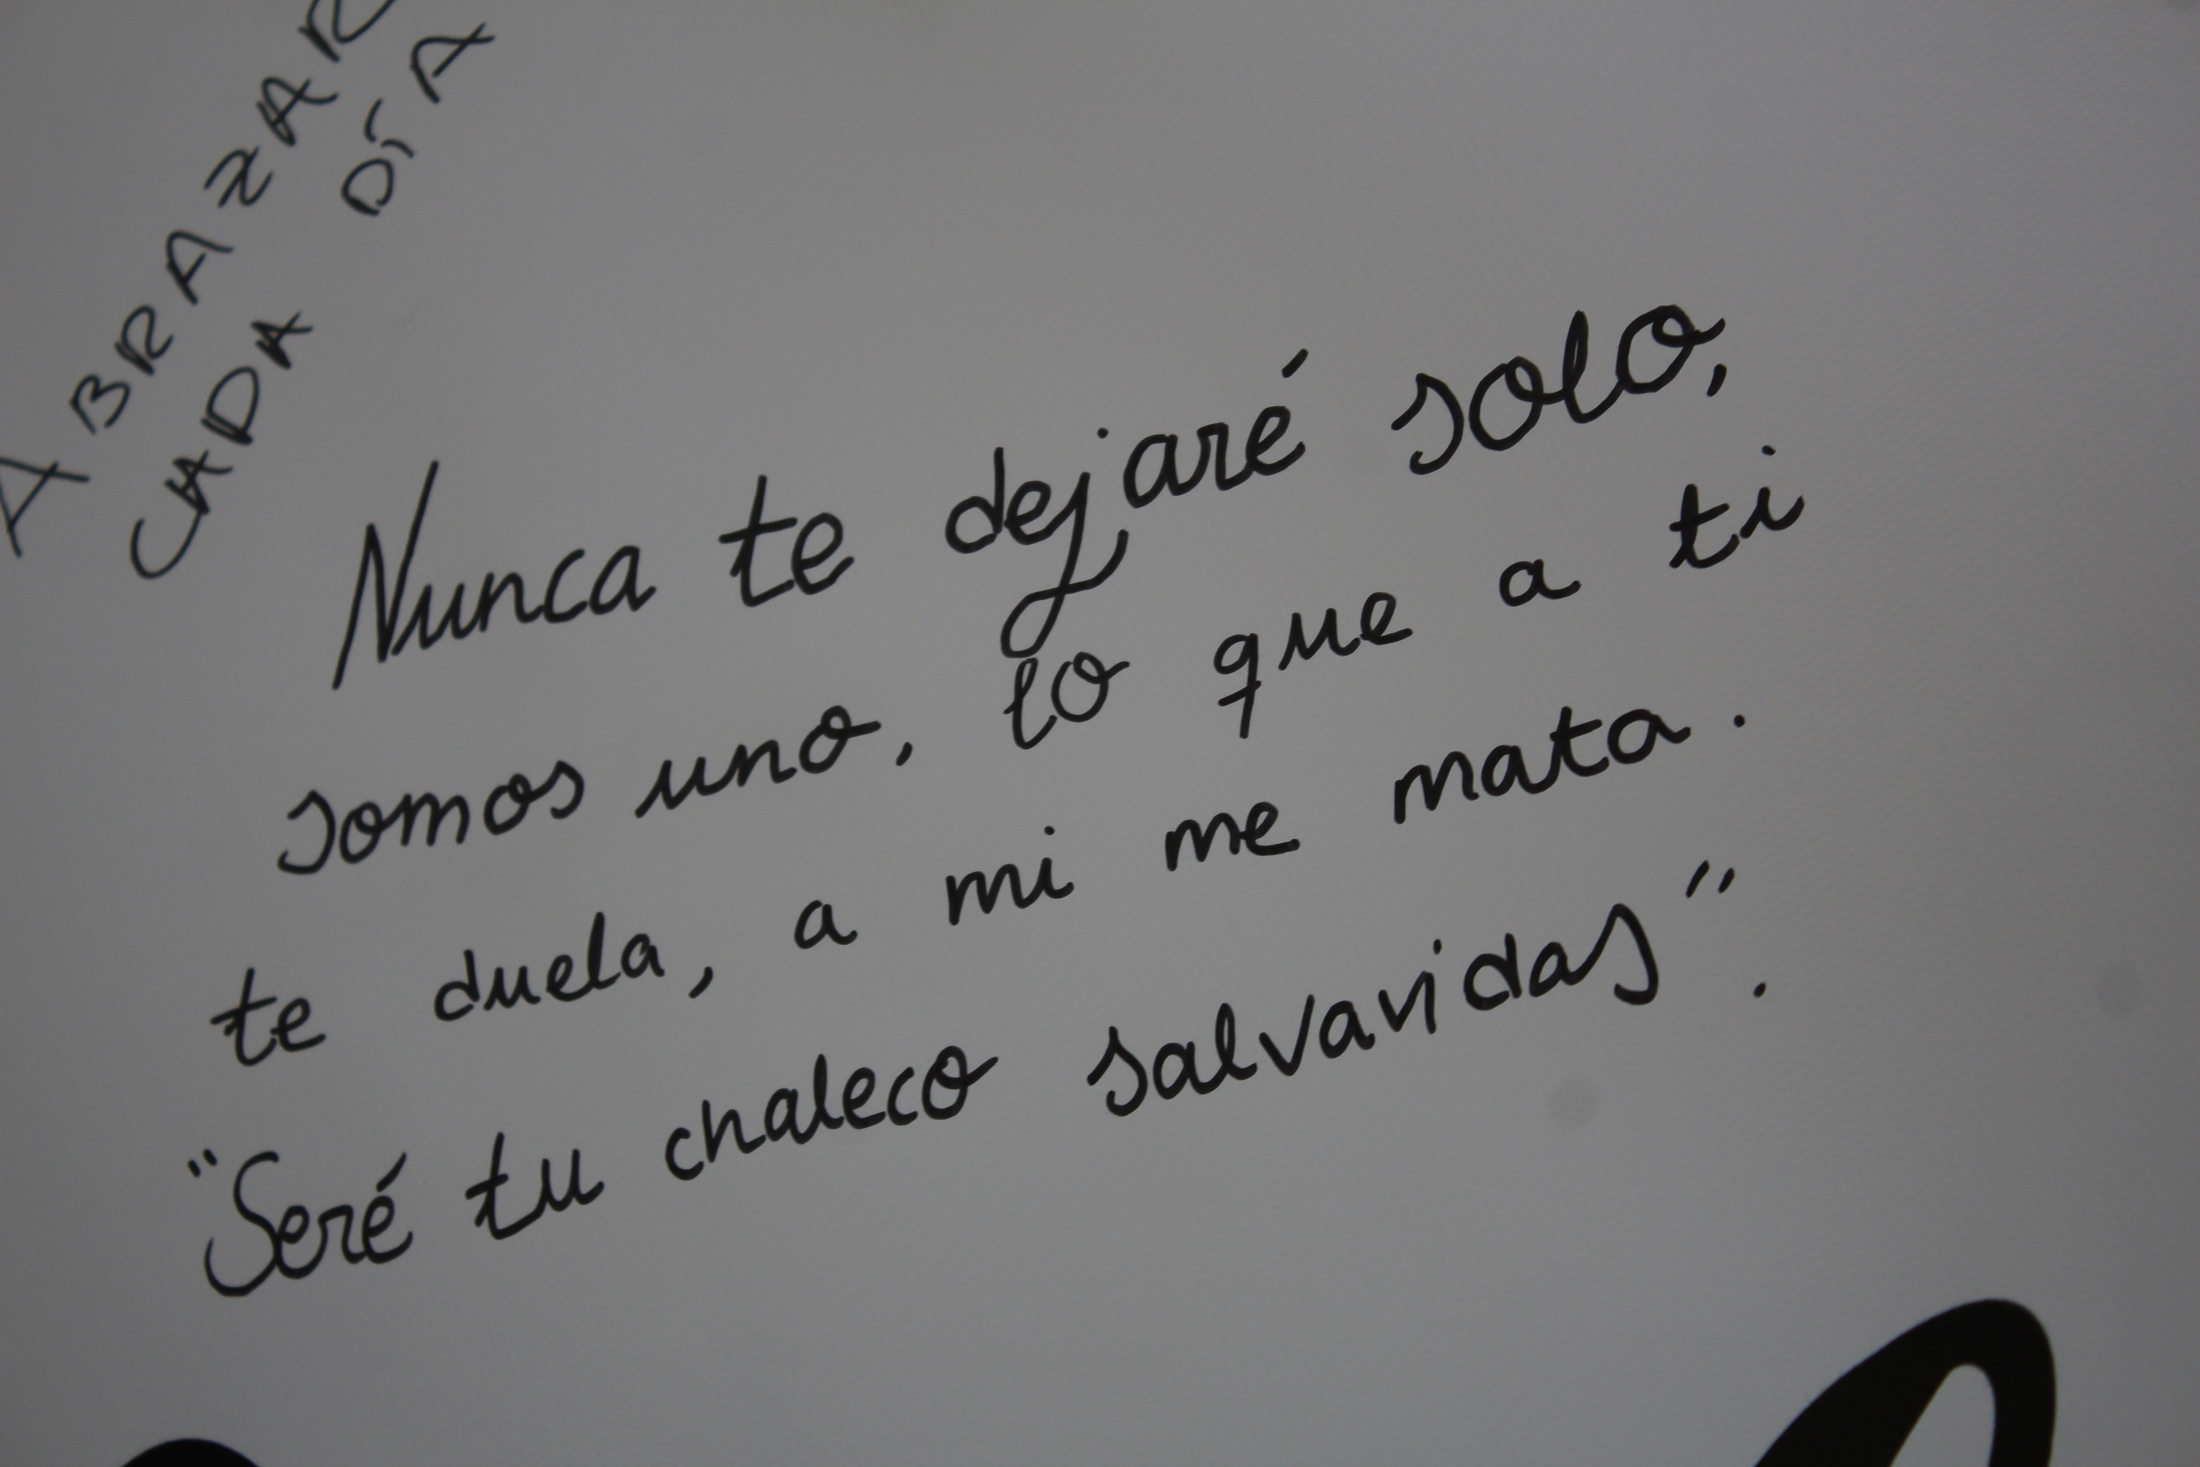 ABRAZAR
CADA DÍA
Nunca te dejaré solo,
somos uno, lo que a ti
te duela, a mi me mata.
"Seré tu chaleco salvavidas".